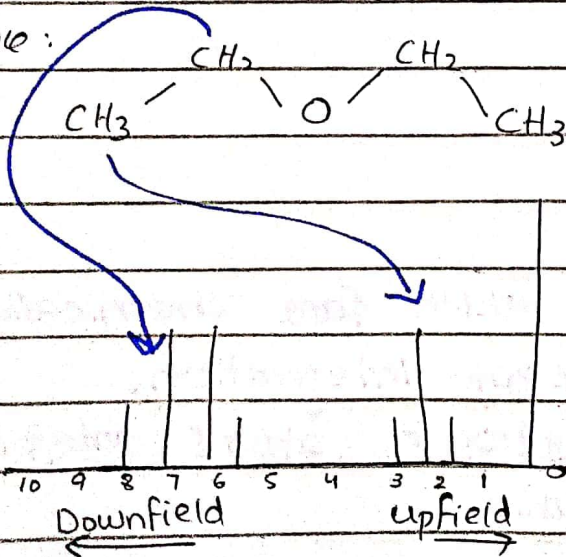 CH₂ CH₂
CH₃ O CH₃
10 9 8 7 6 5 4 3 2 1 0
Downfield upfield